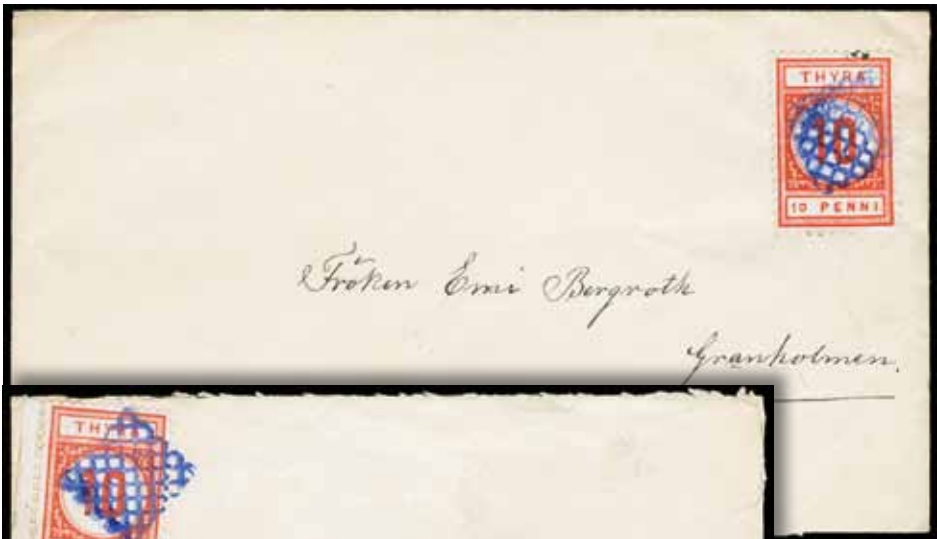 THYRA
10
10 PENNI
Fröken Emi Bergroth
Granholmen.
THY
10